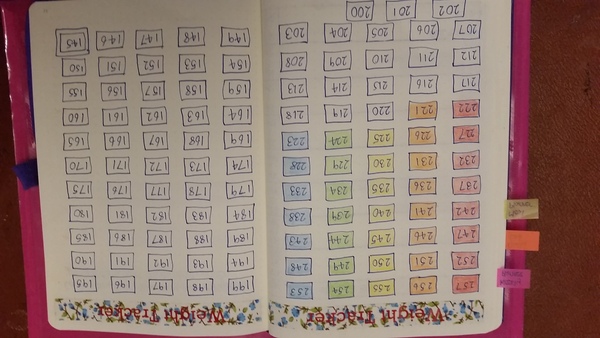 Weight Tracker
195 196 197 198 199
190 191 192 193 194
185 186 187 188 189
180 181 182 183 184
175 176 177 178 179
170 171 172 173 174
165 166 167 168 169
160 161 162 163 164
155 156 157 158 159
150 151 152 153 154
145 146 147 148 149
Weight Tracker
253 254 255 256 257
248 249 250 251 252
243 244 245 246 247
238 239 240 241 242
233 234 235 236 237
228 229 230 231 232
223 224 225 226 227
218 219 220 221 222
213 214 215 216 217
208 209 210 211 212
203 204 205 206 207
200 201 202